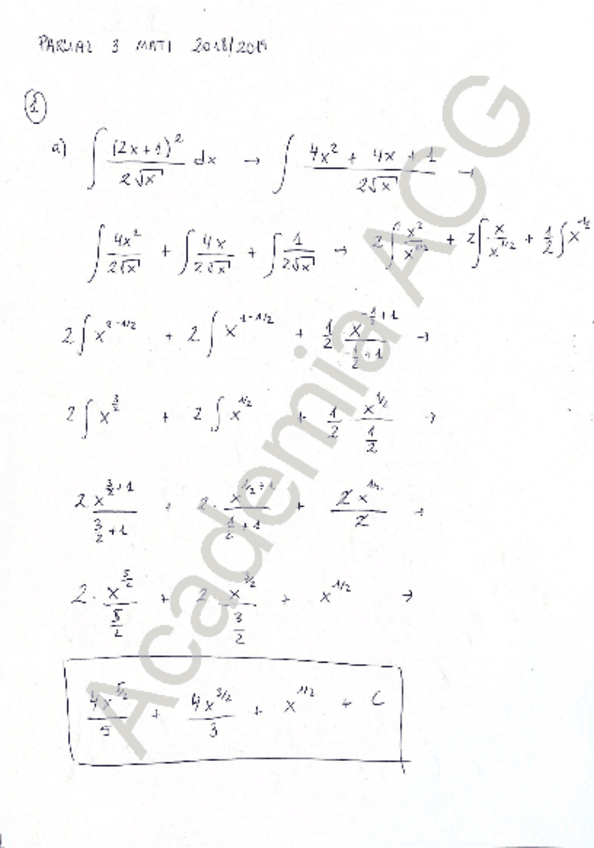 PARCIAL 3 MATI 2018/2019
1
a) ∫ (2x+1)²/(2√x) dx → ∫ (4x² + 4x + 1)/(2√x) →
∫ 4x²/(2√x) + ∫ 4x/(2√x) + ∫ 1/(2√x) → 2∫ x²/x^(1/2) + 2∫ x/x^(1/2) + 1/2 ∫ x^(-1/2)
2∫ x^(2-1/2) + 2∫ x^(1-1/2) + 1/2 x^(-1/2+1)/(-1/2+1) →
2∫ x^(3/2) + 2∫ x^(1/2) + 1/2 · x^(1/2)/(1/2) →
2x^(3/2+1)/(3/2+1) + 2· x^(1/2+1)/(1/2+1) + 2x^(1/2)/2 →
2· x^(5/2)/(5/2) + 2 x^(3/2)/(3/2) + x^(1/2) →
4x^(5/2)/5 + 4x^(3/2)/3 + x^(1/2) + C
Academia ACG